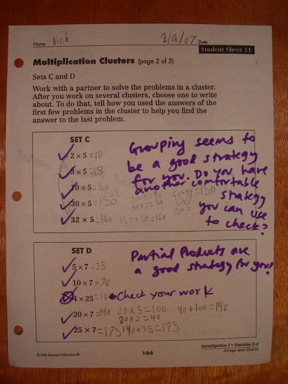 Name Nick 2/9/07 Date
Student Sheet 11
Multiplication Clusters (page 2 of 5)
Sets C and D
Work with a partner to solve the problems in a cluster.
After you work on several clusters, choose one to write
about. To do that, tell how you used the answers of the
first few problems in the cluster to help you find the
answer to the last problem.
SET C
2 × 5 =10
3 × 5 =15
10 × 5 =50
30 × 5 =150
32 × 5 =160 150+10=160
Grouping seems to
be a good strategy
for you. Do you have
another comfortable
strategy
you can use
to check?
SET D
5 × 7 =35
10 × 7 =70
4 × 25 =10 Check your work
20 × 7 =140 20×5=100 40+100=140
20×2=40
25 × 7 =175 140+35=175
Partial Products are
a good strategy for you!
104